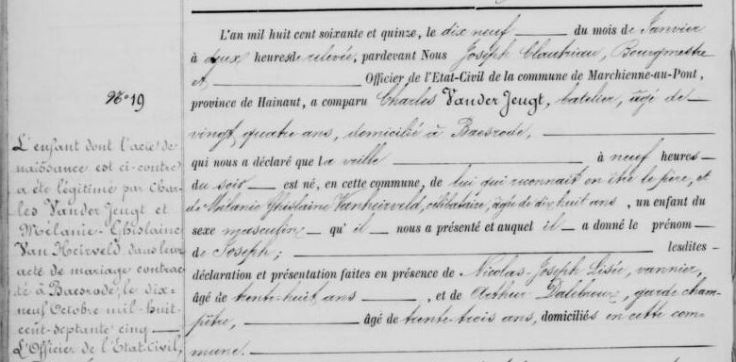 L'an mil huit cent soixante et quinze, le dix neuf du mois de Janvier
à deux heures de relevée, pardevant Nous Joseph Clautriau, Bourgmestre
et Officier de l'Etat-Civil de la commune de Marchienne-au-Pont,
province de Hainaut, a comparu Charles Vander Jeugt, batelier, âgé de
vingt quatre ans, domicilié à Baesrode,
qui nous a déclaré que la veille à neuf heures
du soir est né, en cette commune, de lui qui reconnait en être le père, et
de Mélanie Ghislaine Vanheirveld, célibataire, âgée de dix huit ans, un enfant du
sexe masculin qu'il nous a présenté et auquel il a donné le prénom
de Joseph; lesdites
déclaration et présentation faites en présence de Nicolas-Joseph Lisée, vannier,
âgé de trente-huit ans, et de Arthur garde cham-
pêtre, âgé de trente-trois ans, domiciliés en cette com-
mune.
No 19
L'enfant dont l'acte de
naissance est ci-contre
a été légitimé par Char-
les Vander Jeugt et
Mélanie-Ghislaine
Van Heirveld dans leur
acte de mariage contrac-
té à Baesrode, le dix-
neuf Octobre mil-huit-
cent-septante cinq
L'Officier de l'Etat Civil,